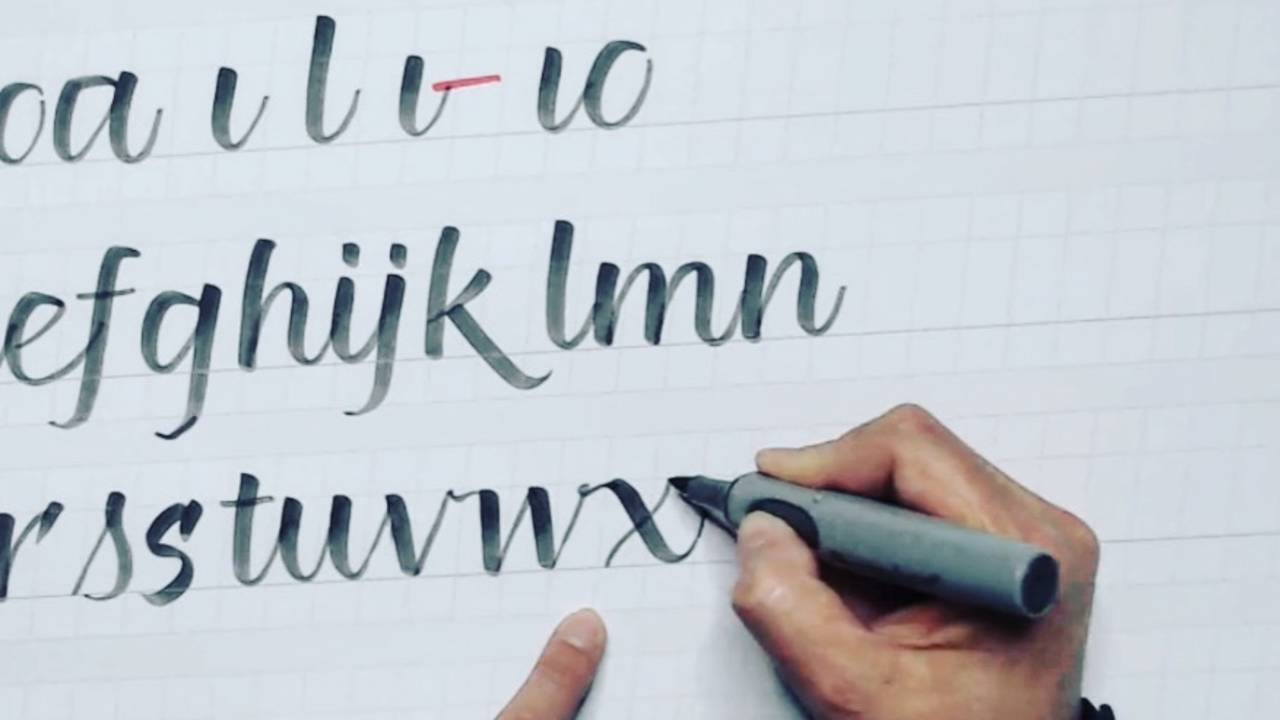 oa ı l ı- ıo
efghijklmn
rsstuvwx